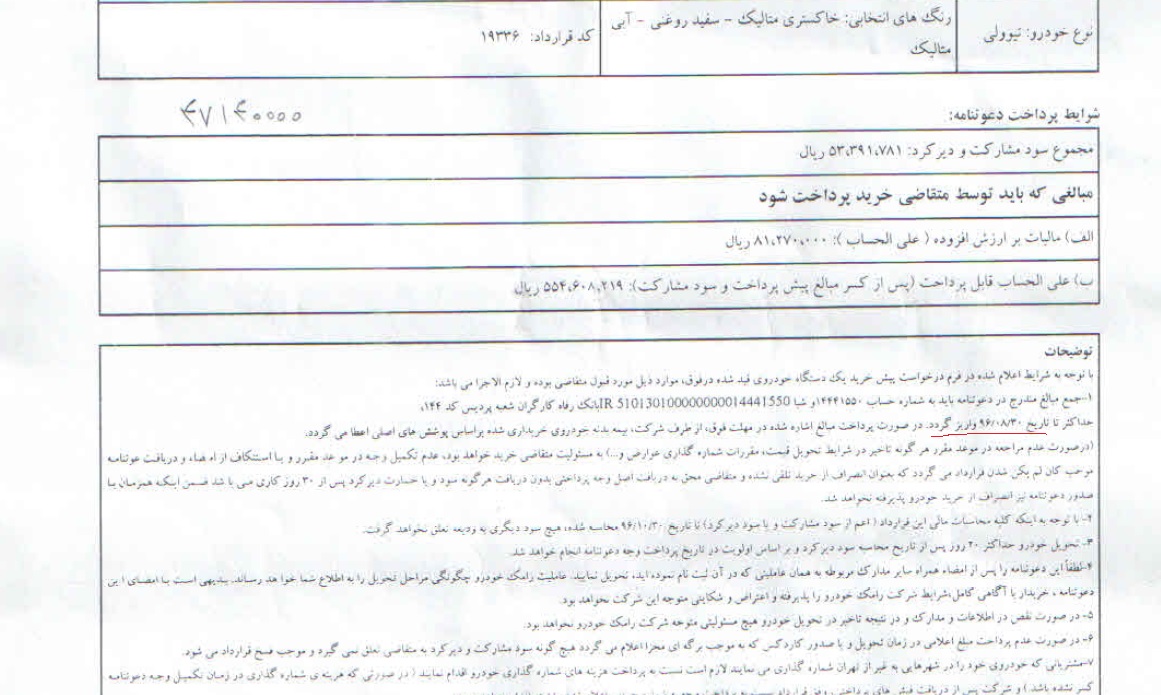 نوع خودرو: تیوولی
رنگ های انتخابی: خاکستری متالیک - سفید روغنی - آبی متالیک
کد قرارداد: ۱۹۳۳۶
شرایط پرداخت دعوتنامه:
۴۷۱۴۰۰۰۰
مجموع سود مشارکت و دیرکرد: ۵۳،۳۹۱،۷۸۱ ریال
مبالغی که باید توسط متقاضی خرید پرداخت شود
الف) مالیات بر ارزش افزوده ( علی الحساب ): ۸۱،۲۷۰،۰۰۰ ریال
ب) علی الحساب قابل پرداخت (پس از کسر مبالغ پیش پرداخت و سود مشارکت): ۵۵۴،۶۰۸،۲۱۹ ریال
توضیحات
با توجه به شرایط اعلام شده در فرم درخواست پیش خرید یک دستگاه خودروی قید شده درفوق، موارد ذیل مورد قبول متقاضی بوده و لازم الاجرا می باشد:
۱-جمع مبالغ مندرج در دعوتنامه باید به شماره حساب ۱۴۴۴۱۵۵۰و شبا IR 510130100000000014441550بانک رفاه کارگران شعبه پردیس کد ۱۴۴،
حداکثر تا تاریخ ۹۶/۰۸/۳۰ واریز گردد. در صورت پرداخت مبالغ اشاره شده در مهلت فوق، از طرف شرکت، بیمه بدنه خودروی خریداری شده براساس پوشش های اصلی اعطا می گردد.
(درصورت عدم مراجعه در موعد مقرر هر گونه تاخیر در شرایط تحویل قیمت، مقررات شماره گذاری عوارض و...) به مسئولیت متقاضی خرید خواهد بود، عدم تکمیل وجه در موعد مقرر و یا استنکاف از امضاء و دریافت عوتنامه
موجب کان لم یکن شدن قرارداد می گردد که بعنوان انصراف از خرید تلقی شده و متقاضی محق به دریافت اصل وجه پرداختی بدون دریافت هرگونه سود و یا خسارت دیرکرد پس از ۳۰ روز کاری می با شد ضمن اینکه همزمان با
صدور دعوتنامه نیز انصراف از خرید خودرو پذیرفته نخواهد شد.
۲- با توجه به اینکه کلیه محاسبات مالی این قرارداد ( اعم از سود مشارکت و یا سود دیرکرد) تا تاریخ ۹۶/۱۰/۳۰ محاسبه شده، هیچ سود دیگری به ودیعه تعلق نخواهد گرفت.
۳- تحویل خودرو حداکثر ۲۰ روز پس از تاریخ محاسبه سود دیرکرد و بر اساس اولویت در تاریخ پرداخت وجه دعوتنامه انجام خواهد شد.
۴-لطفاً این دعوتنامه را پس از امضاء همراه سایر مدارک مربوطه به همان عاملیتی که در آن ثبت نام نموده اید، تحویل نمایید. عاملیت رامک خودرو چگونگی مراحل تحویل را به اطلاع شما خواهد رساند. بدیهی است با امضای این
دعوتنامه ، خریدار با آگاهی کامل،شرایط شرکت رامک خودرو را پذیرفته و اعتراض و شکایتی متوجه این شرکت نخواهد بود.
۵- در صورت نقص در اطلاعات و مدارک و در نتیجه تاخیر در تحویل خودرو هیچ مسئولیتی متوجه شرکت رامک خودرو نخواهد بود.
۶- در صورت عدم پرداخت مبلغ اعلامی در زمان تحویل و یا صدور کاردکس که به موجب برگه ای مجزا اعلام می گردد هیچ گونه سود مشارکت و دیرکرد به متقاضی تعلق نمی گیرد و موجب فسخ قرارداد می شود.
۷-مشتریانی که خودروی خود را در شهرهایی به غیر از تهران شماره گذاری می نمایند لازم است نسبت به پرداخت هزینه های شماره گذاری خودرو اقدام نمایند ( در صورتی که هزینه ی شماره گذاری در زمان تکمیل وجه دعوتنامه
کسر نشده باشد ) و شرکت پس از دریافت فیش های پرداختی